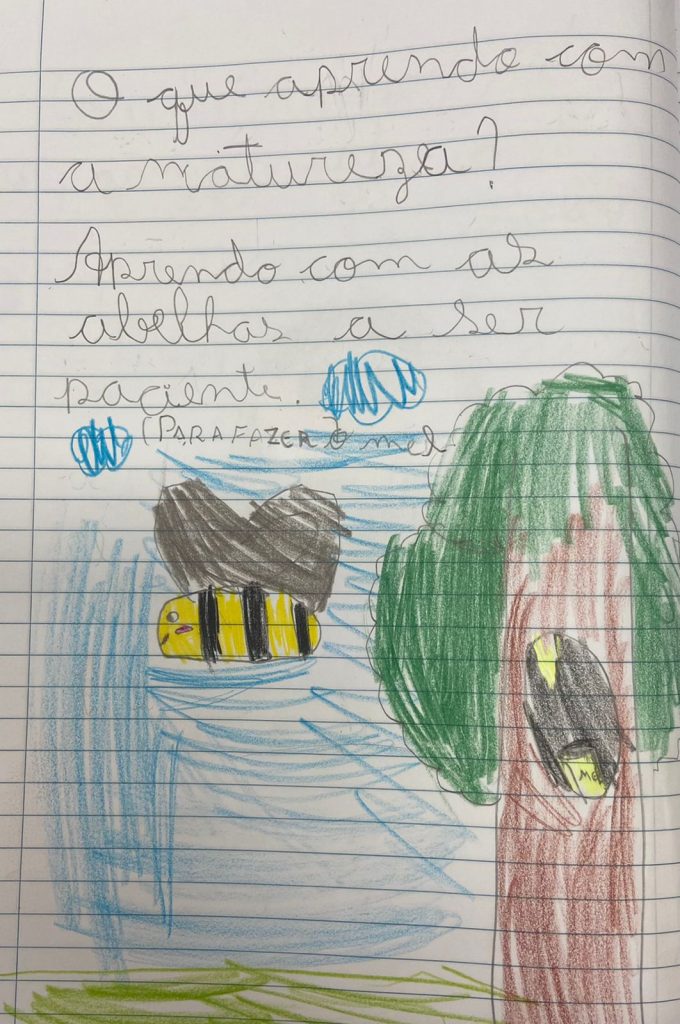 O que aprendo com
a natureza?
Aprendo com as
abelhas a ser
paciente.
(PARA FAZER O mel
MEL